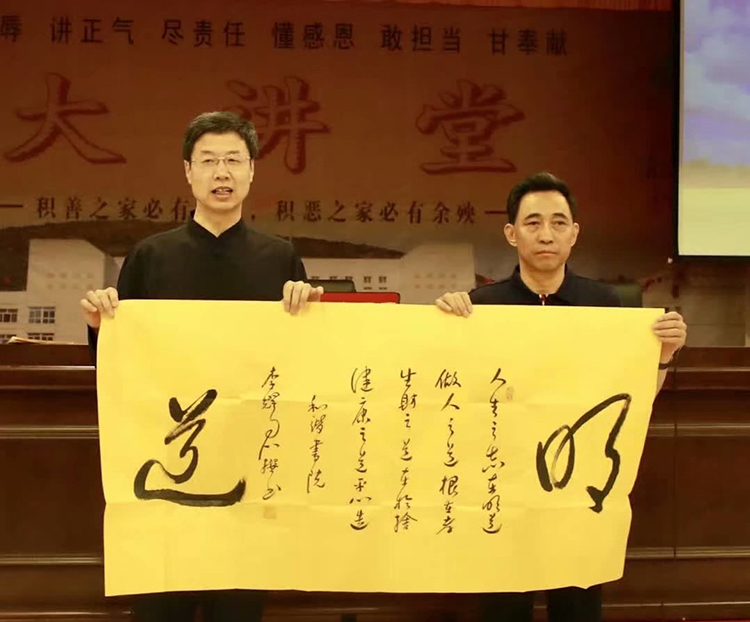 辱 讲正气 尽责任 懂感恩 敢担当 甘奉献
大讲堂
积善之家必有 ，积恶之家必有余殃
明
人生之志在明道
做人之道根在孝
生财之道在於捨
健康之道平心造
和 书院
李 撰书
道